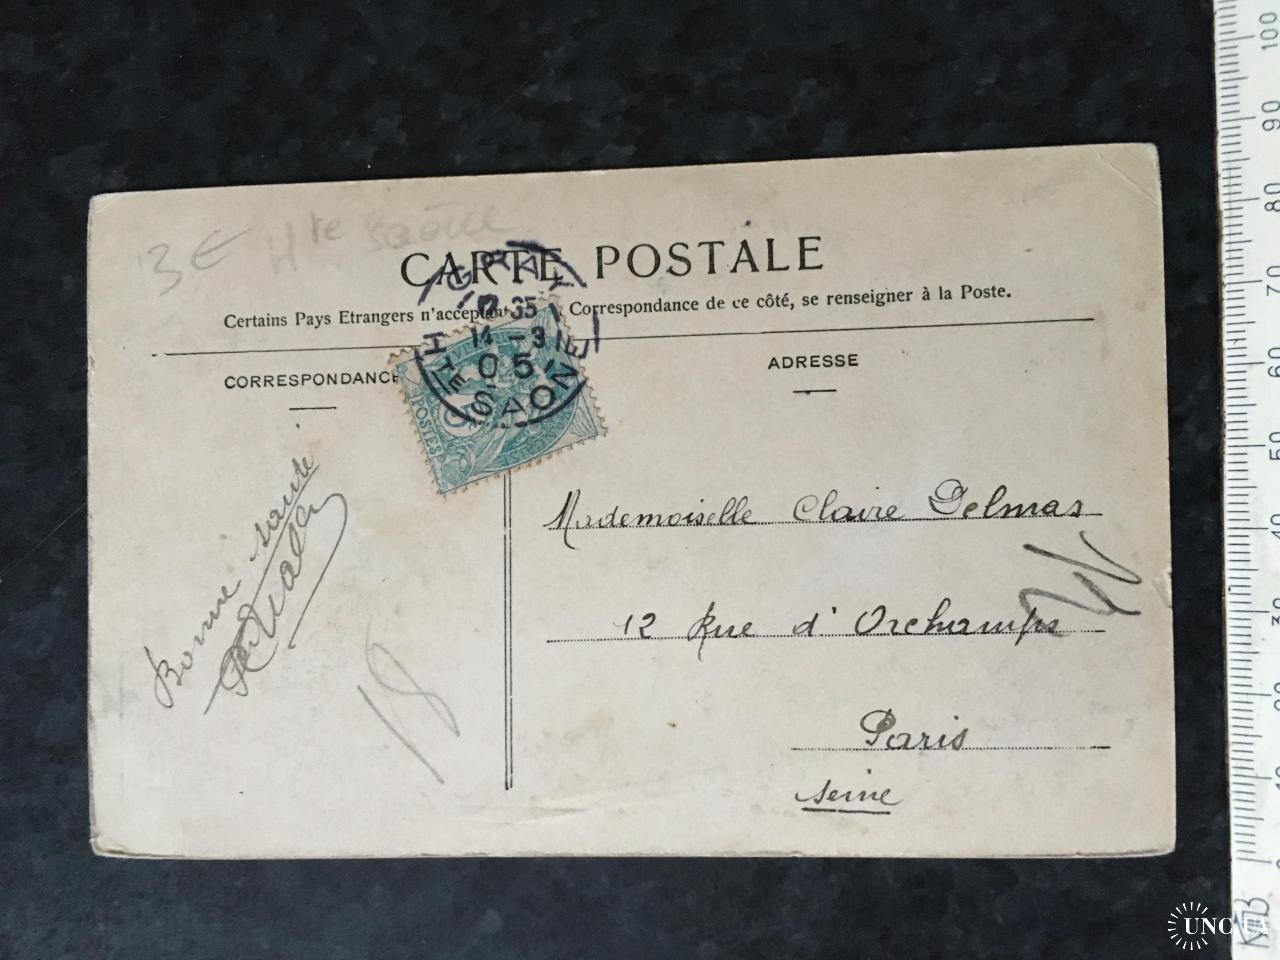 3€ Hte Saône
CARTE POSTALE
Certains Pays Etrangers n'acceptant Correspondance de ce côté, se renseigner à la Poste.
GRAY
12 35
14 - 3
05
HTE SAÔNE
POSTES
5
CORRESPONDANCE
ADRESSE
Bonne santé
18
Mademoiselle Claire Delmas
12 Rue d'Orchamps
Paris
Seine
100
90
80
70
60
50
40
30
20
10
0
UNC.UA